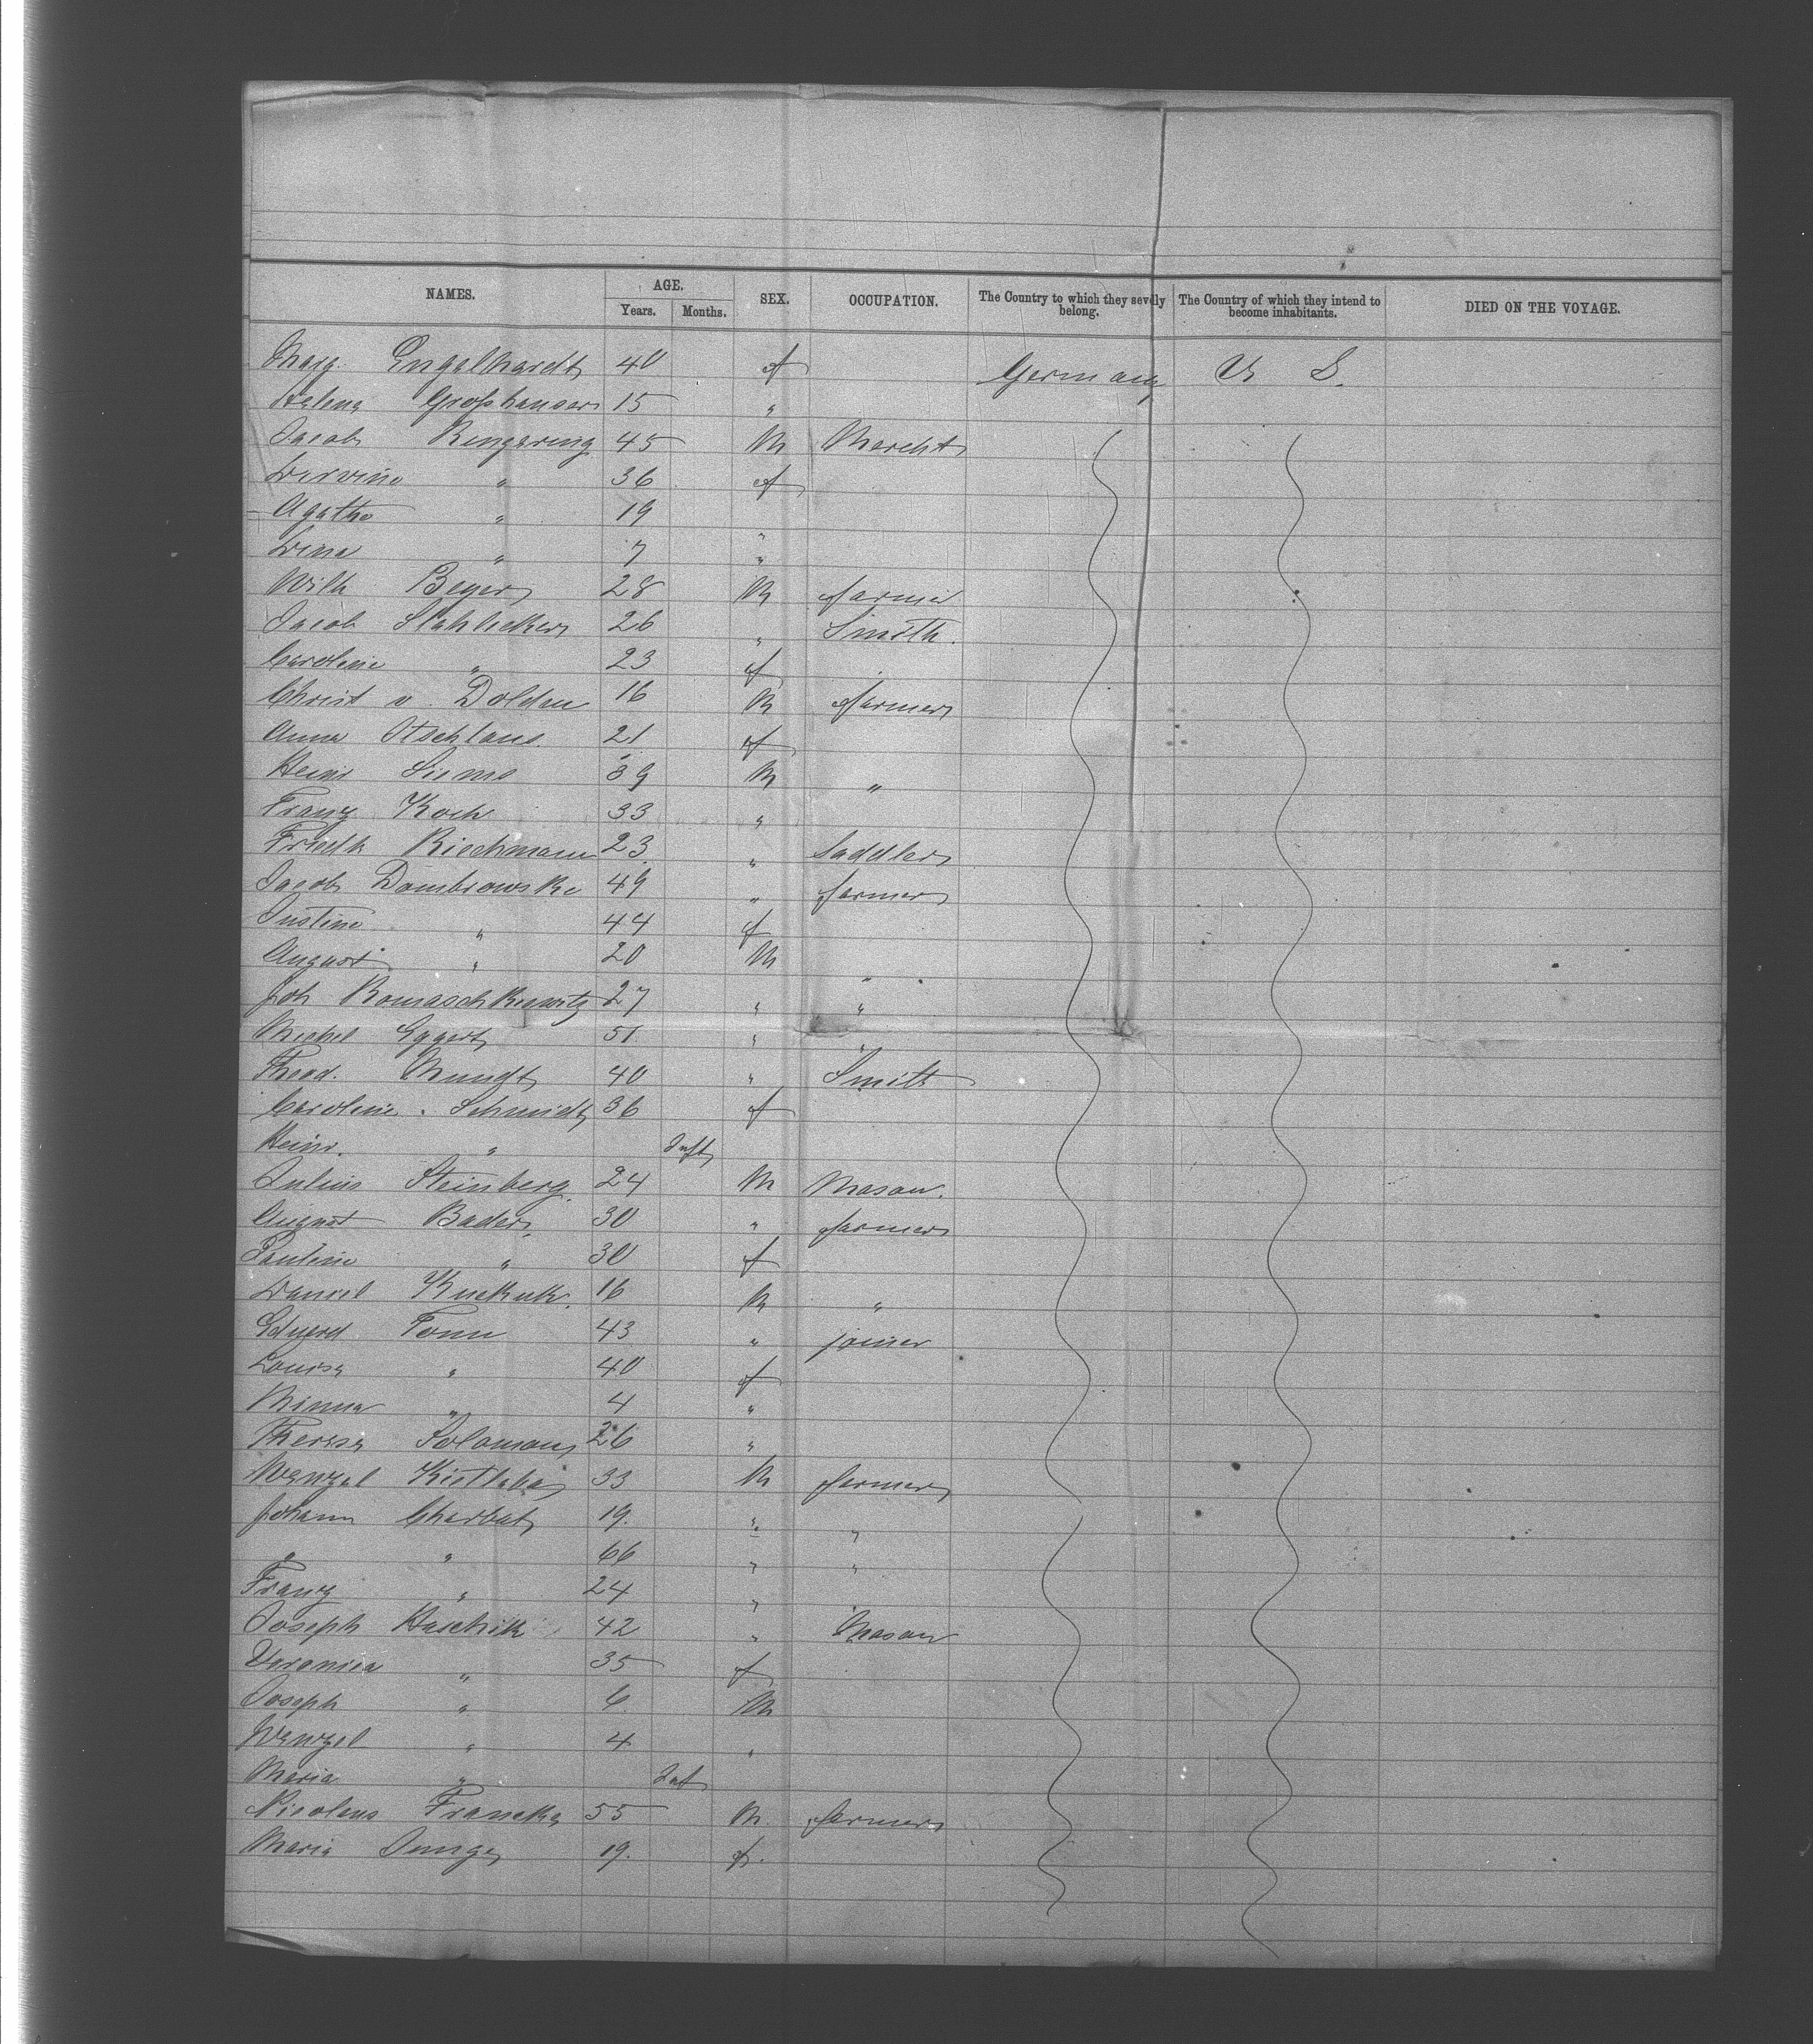 NAMES. AGE. SEX. OCCUPATION. The Country to which they sevrly belong. The Country of which they intend to become inhabitants. DIED ON THE VOYAGE.
Years. Months.
Marg. Engelhardt 40 f Germany U S.
Helena Großhauser 15 "
Jacob 45 M Marcht
" 36 f
Agathe " 19 "
Lina " 7 "
Wilh Beyer 28 M farmer
Jacob Stahlecker 26 " Smith.
Caroline " 23 f
Christ v. Dolden 16 M farmer
Anna 21 f
Heinr 39 M "
Franz Koch 33 "
Friedk Riechmann 23 " Saddler
Jacob Dombrowske 49 " farmer
Justine " 44 f
August " 20 M "
Joh Romaschkewitz 27 " "
Michel Eggert 51 " "
Theod. Mundt 40 " Smith
Caroline Schmidt 36 f
Heinr. " Inft
Julius Steinberg 24 M Mason.
August Bader 30 " farmer
Pauline " 30 f
Daniel Kuckuk 16 M "
Eduard Tonn 43 " joiner
Louisa " 40 f
Minna " 4 "
Theresa Solomon 26 "
Wenzel 33 M farmer
Johann Charbat 19. " "
" " 66 " "
Franz " 24 "
Joseph Haschik 42 " Mason
Veronica " 35 f
Joseph " 6 M
Wenzel " 4 "
Maria " Inf
Nicolaus Francke 55 M farmer
Maria Junge 19. f.